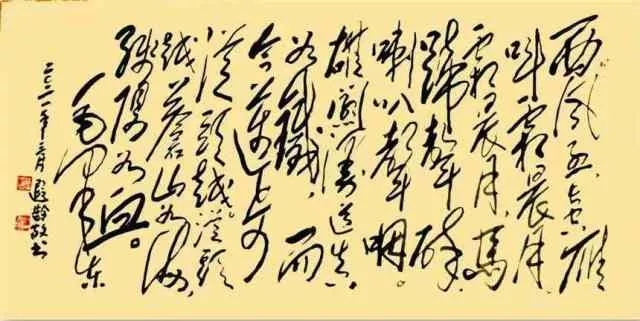 西风烈,长空雁
叫霜晨月。
霜晨月,马
蹄声碎,
喇叭声咽。
雄关漫道真
如铁,而
今迈步
从头越。从头
越苍山如海,
残阳如血。
毛泽东
二〇二一年十二月
龄敬书